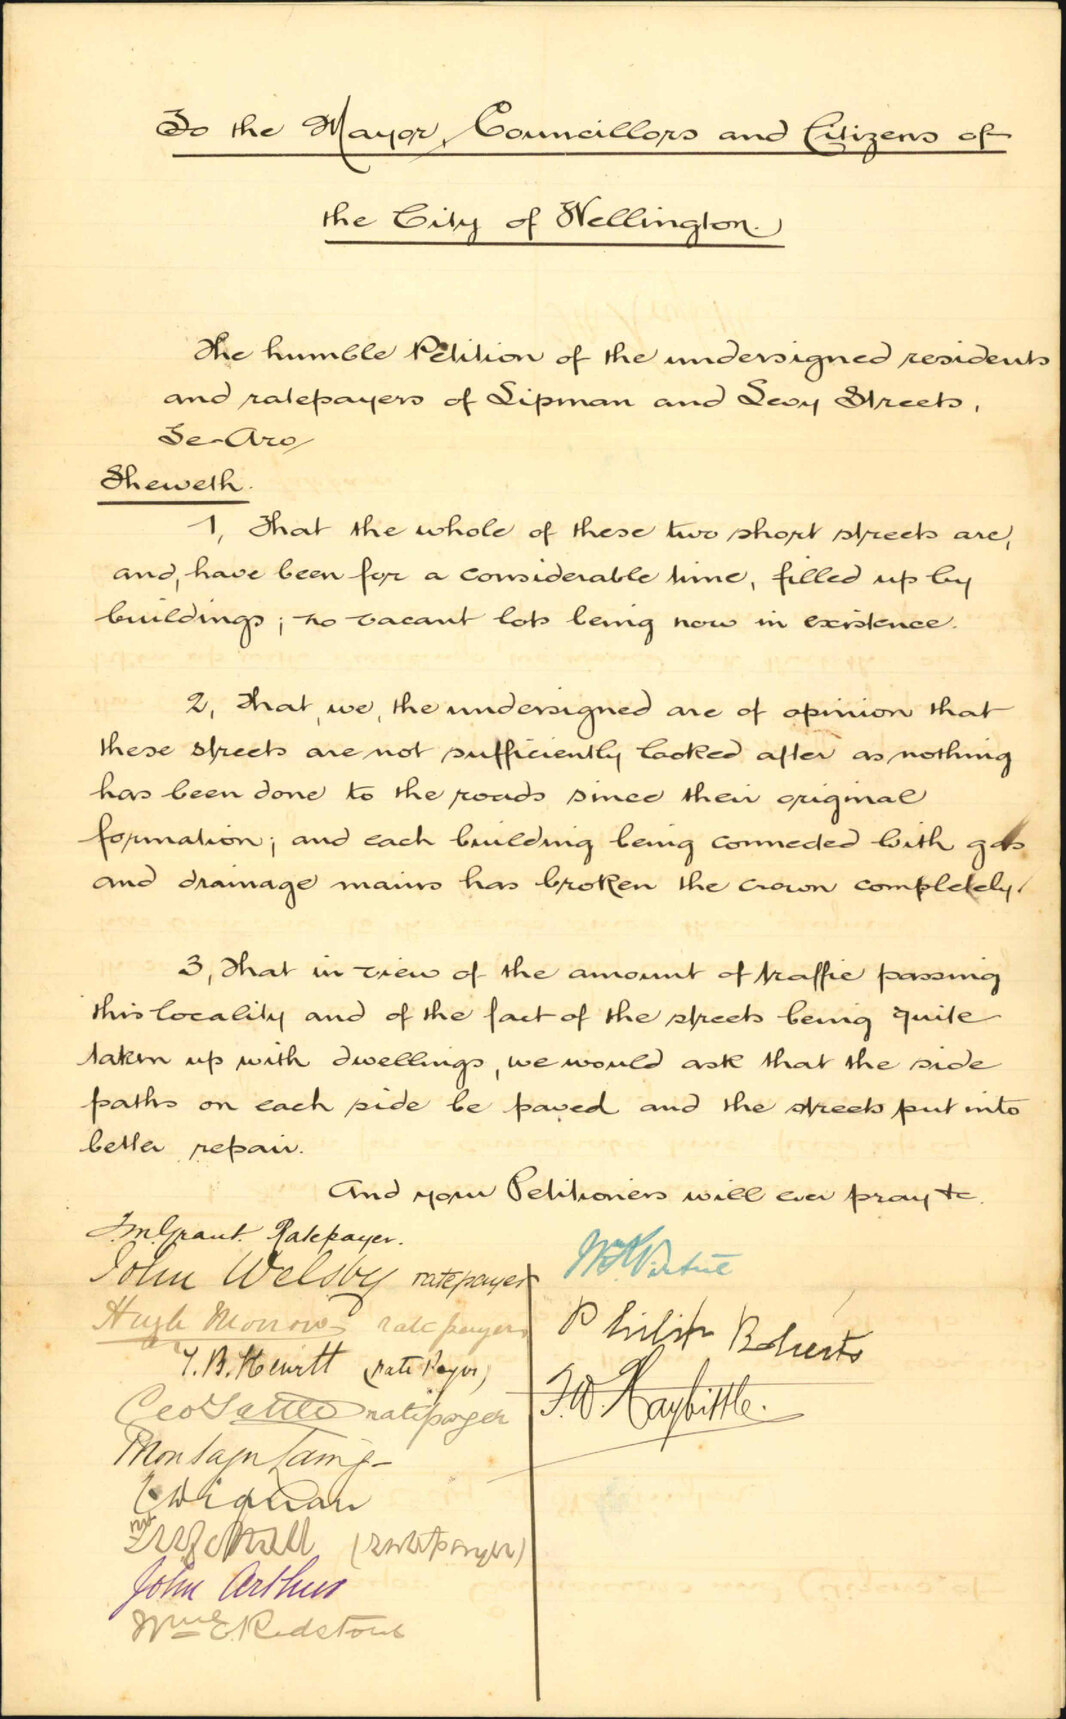 To the Mayor, Councillors and Citizens of
the City of Wellington.
The humble Petition of the undersigned residents
and ratepayers of Lipman and Levy Streets,
Te-Aro
Sheweth.
1, That the whole of these two short streets are,
and, have been for a considerable time, filled up by
buildings; no vacant lots being now in existence.
2, That, we, the undersigned are of opinion that
these streets are not sufficiently looked after as nothing
has been done to the roads since their original
formation; and each building being connected with gas
and drainage mains has broken the crown completely.
3, That in view of the amount of traffic passing
this locality and of the fact of the streets being quite
taken up with dwellings, we would ask that the side
paths on each side be paved and the streets put into
better repair.
And your Petitioners will ever pray &c.
Grant. Ratepayer.
John Welsby ratepayer
Hugh Morrow ratepayer
T. B. Hewitt (ratepayer)
Geo ratepayer
Montagu Laing
(ratepayer)
John Arthur
Wm E. Redstone
Virtue
Philip Roberts
F. W. Haybittle.